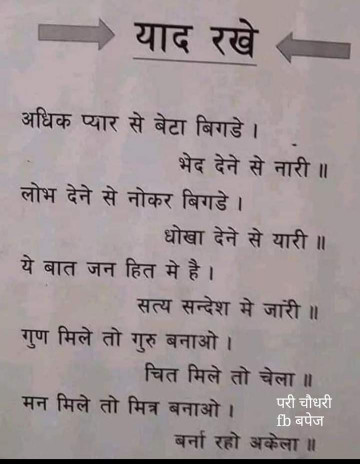 याद रखे
अधिक प्यार से बेटा बिगडे ।
भेद देने से नारी ॥
लोभ देने से नोकर बिगडे ।
धोखा देने से यारी ॥
ये बात जन हित मे है ।
सत्य सन्देश मे जारी ॥
गुण मिले तो गुरु बनाओ ।
चित मिले तो चेला ॥
मन मिले तो मित्र बनाओ ।
बर्ना रहो अकेला ॥
परी चौधरी
fb बपेज